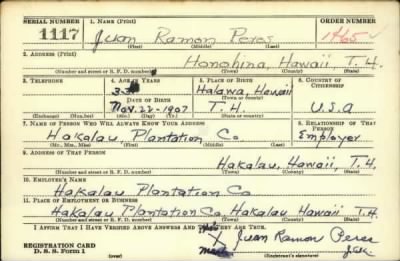 SERIAL NUMBER 1. NAME (Print) ORDER NUMBER
1117 Juan Ramon Peres 1465
(First) (Middle) (Last)
2. ADDRESS (Print)
Honohina, Hawaii, T.H.
(Number and street or R. F. D. number) (Town) (County) (State)
3. TELEPHONE 4. AGE IN YEARS 5. PLACE OF BIRTH 6. COUNTRY OF CITIZENSHIP
33 Halawa, Hawaii
DATE OF BIRTH (Town or county)
Nov. 22-1907 T.H. U.S.A
(Exchange) (Number) (Mo.) (Day) (Yr.) (State or country)
7. NAME OF PERSON WHO WILL ALWAYS KNOW YOUR ADDRESS 8. RELATIONSHIP OF THAT PERSON
Hakalau Plantation Co Employer
(Mr., Mrs., Miss) (First) (Middle) (Last)
9. ADDRESS OF THAT PERSON
Hakalau, Hawaii, T.H.
(Number and street or R. F. D. number) (Town) (County) (State)
10. EMPLOYER'S NAME
Hakalau Plantation Co
11. PLACE OF EMPLOYMENT OR BUSINESS
Hakalau Plantation Co, Hakalau Hawaii T.H.
(Number and street or R. F. D. number) (Town) (County) (State)
I AFFIRM THAT I HAVE VERIFIED ABOVE ANSWERS AND THAT THEY ARE TRUE.
his
X Juan Ramon Peres
REGISTRATION CARD mark
D. S. S. Form 1 (Registrant's signature)